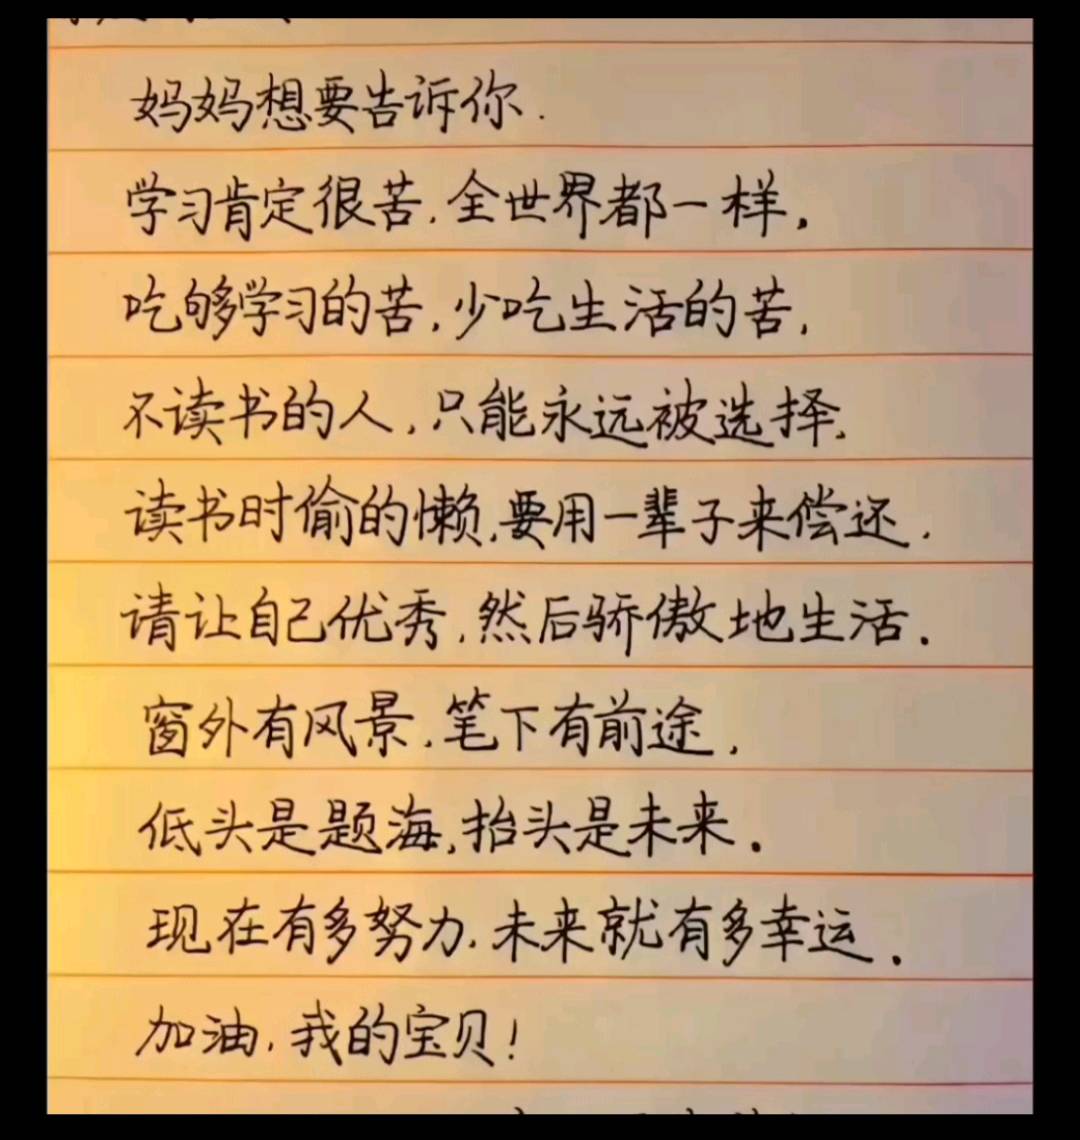 妈妈想要告诉你.
学习肯定很苦,全世界都一样,
吃够学习的苦,少吃生活的苦,
不读书的人,只能永远被选择,
读书时偷的懒,要用一辈子来偿还.
请让自己优秀,然后骄傲地生活.
窗外有风景,笔下有前途,
低头是题海,抬头是未来.
现在有多努力,未来就有多幸运.
加油,我的宝贝!